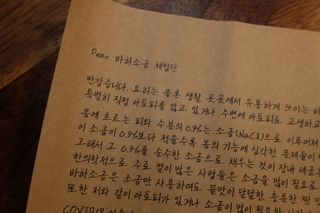 Dear. 바하소금 체험단
반갑습니다. 요리는 물론 생활 곳곳에서 유용하게 쓰이는 바
특별히 직접 아토피를 앓고 있거나, 주변에 아토피로 고생하
몸에 흐르는 피와 수분의 0.9%는 소금(NaCl)으로 이루어져
이 소금이 0.9%보다 적을수록 몸의 기능에 심각한 문제들이
그래서 그 0.9%를 순수한 소금으로 채우는 것이 장내 세균
한의학적으로 주로 열이 많은 사람들은 소금을 많이 필요로
바하소금은 소금만 사용하여도 끝맛이 달달한 충분한 찐 맛
또한 저와 같이 아토피가 있거나 소금이 많이 필요한
COVID19